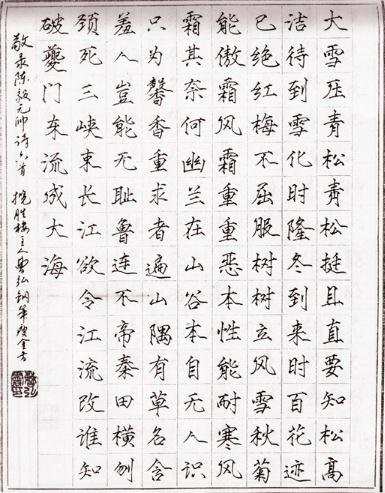 大雪压青松青松挺且直要知松高
洁待到雪化时隆冬到来时百花迹
已绝红梅不屈服树树立风雪秋菊
能傲霜风霜重重恶本性能耐寒风
霜其奈何幽兰在山谷本自无人识
只为馨香重求者遍山隅有草名含
羞人岂能无耻鲁连不帝秦田横刎
颈死三峡束长江欲令江流改谁知
破夔门东流成大海
敬录陈毅元帅诗六首 揽胜楼主人曹弘钢笔瘦金书